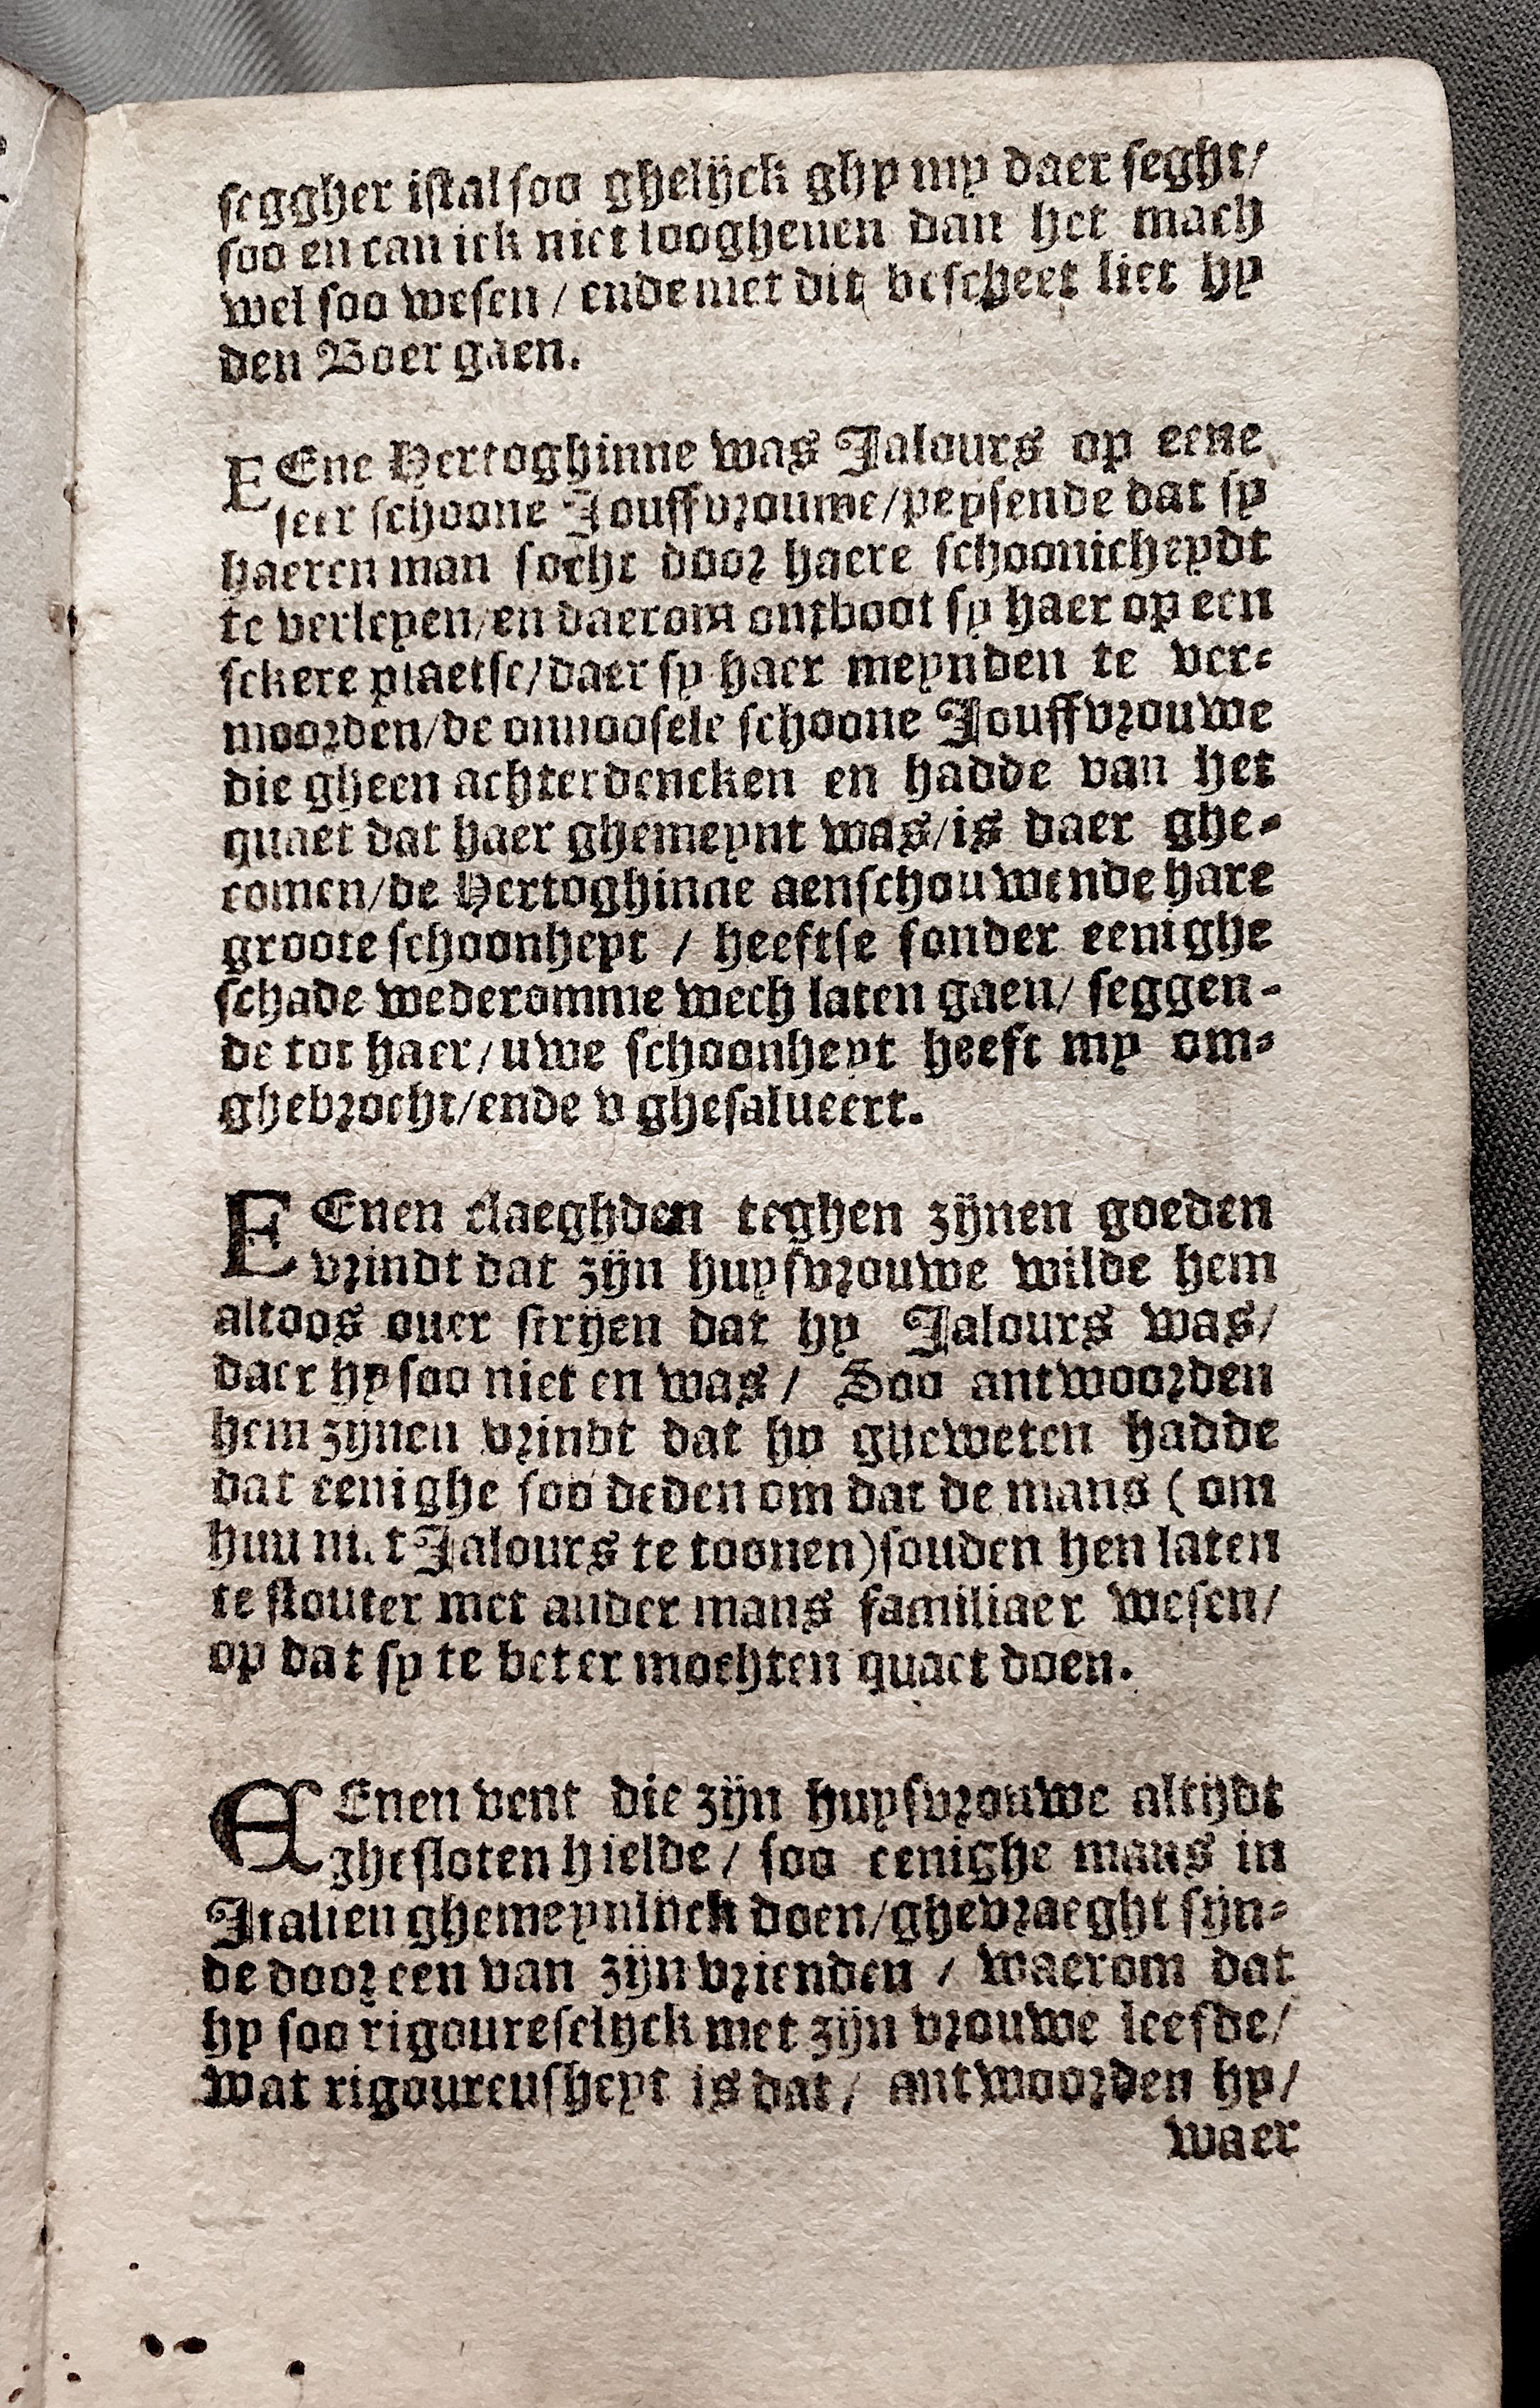 seggher istal soo ghelijck ghy my daer seght/
soo en can ick niet looghenen dan het mach
wel soo wesen / ende met dit bescheet liet hy
den Boer gaen.
EEne Hertoghinne was Jalours op eene
seer schoone Jouffvrouwe/peysende dat sy
haeren man socht door haere schoonicheydt
te verleyen/en daerom ontboot sy haer op een
sekere plaetse/daer sy haer meynden te ver-
moorden/de onnoosele schoone Jouffvrouwe
die gheen achterdencken en hadde van het
quaet dat haer ghemeynt was/is daer ghe-
comen/de Hertoghinne aenschouwende hare
groote schoonheyt / heeftse sonder eenighe
schade wederomme wech laten gaen/ seggen-
de tot haer/uwe schoonheyt heeft my om-
ghebrocht/ende v ghesalueert.
EEnen claeghden teghen zijnen goeden
vrindt dat zijn huysvrouwe wilde hem
altoos ouer strijen dat hy Jalours was/
daer hy soo niet en was / Soo antwoorden
hem zijnen vrindt dat hy gheweten hadde
dat eenighe soo deden om dat de mans ( om
hun niet Jalours te toonen)souden hen laten
te stouter met ander mans familiaer wesen/
op dat sy te beter mochten quaet doen.
EEnen vent die zijn huysvrouwe altijdt
ghesloten hielde / soo eenighe mans in
Italien ghemeynlijck doen/ghevraeght sijn-
de door een van zijn vrienden / waerom dat
hy soo rigoureselijck met zijn vrouwe leefde/
wat rigoureusheyt is dat / antwoorden hy/
waer